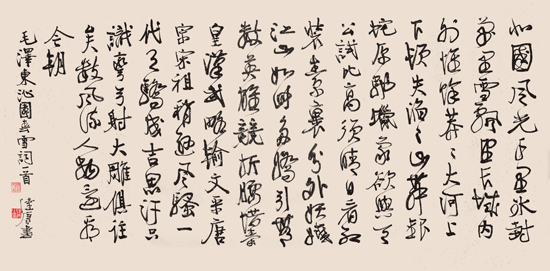 北國風光千里冰封
萬里雪飄望長城內
外惟餘莽々大河上
下頓失滔々山舞銀
蛇原馳蠟象欲與天
公試比高須晴日看紅
裝素裹分外妖嬈
江山如此多嬌引無
數英雄競折腰惜秦
皇漢武略輸文采唐
宗宋祖稍遜風騷一
代天驕成吉思汗只
識彎弓射大雕俱往
矣數風流人物還看
今朝
毛澤東沁園春雪詞一首